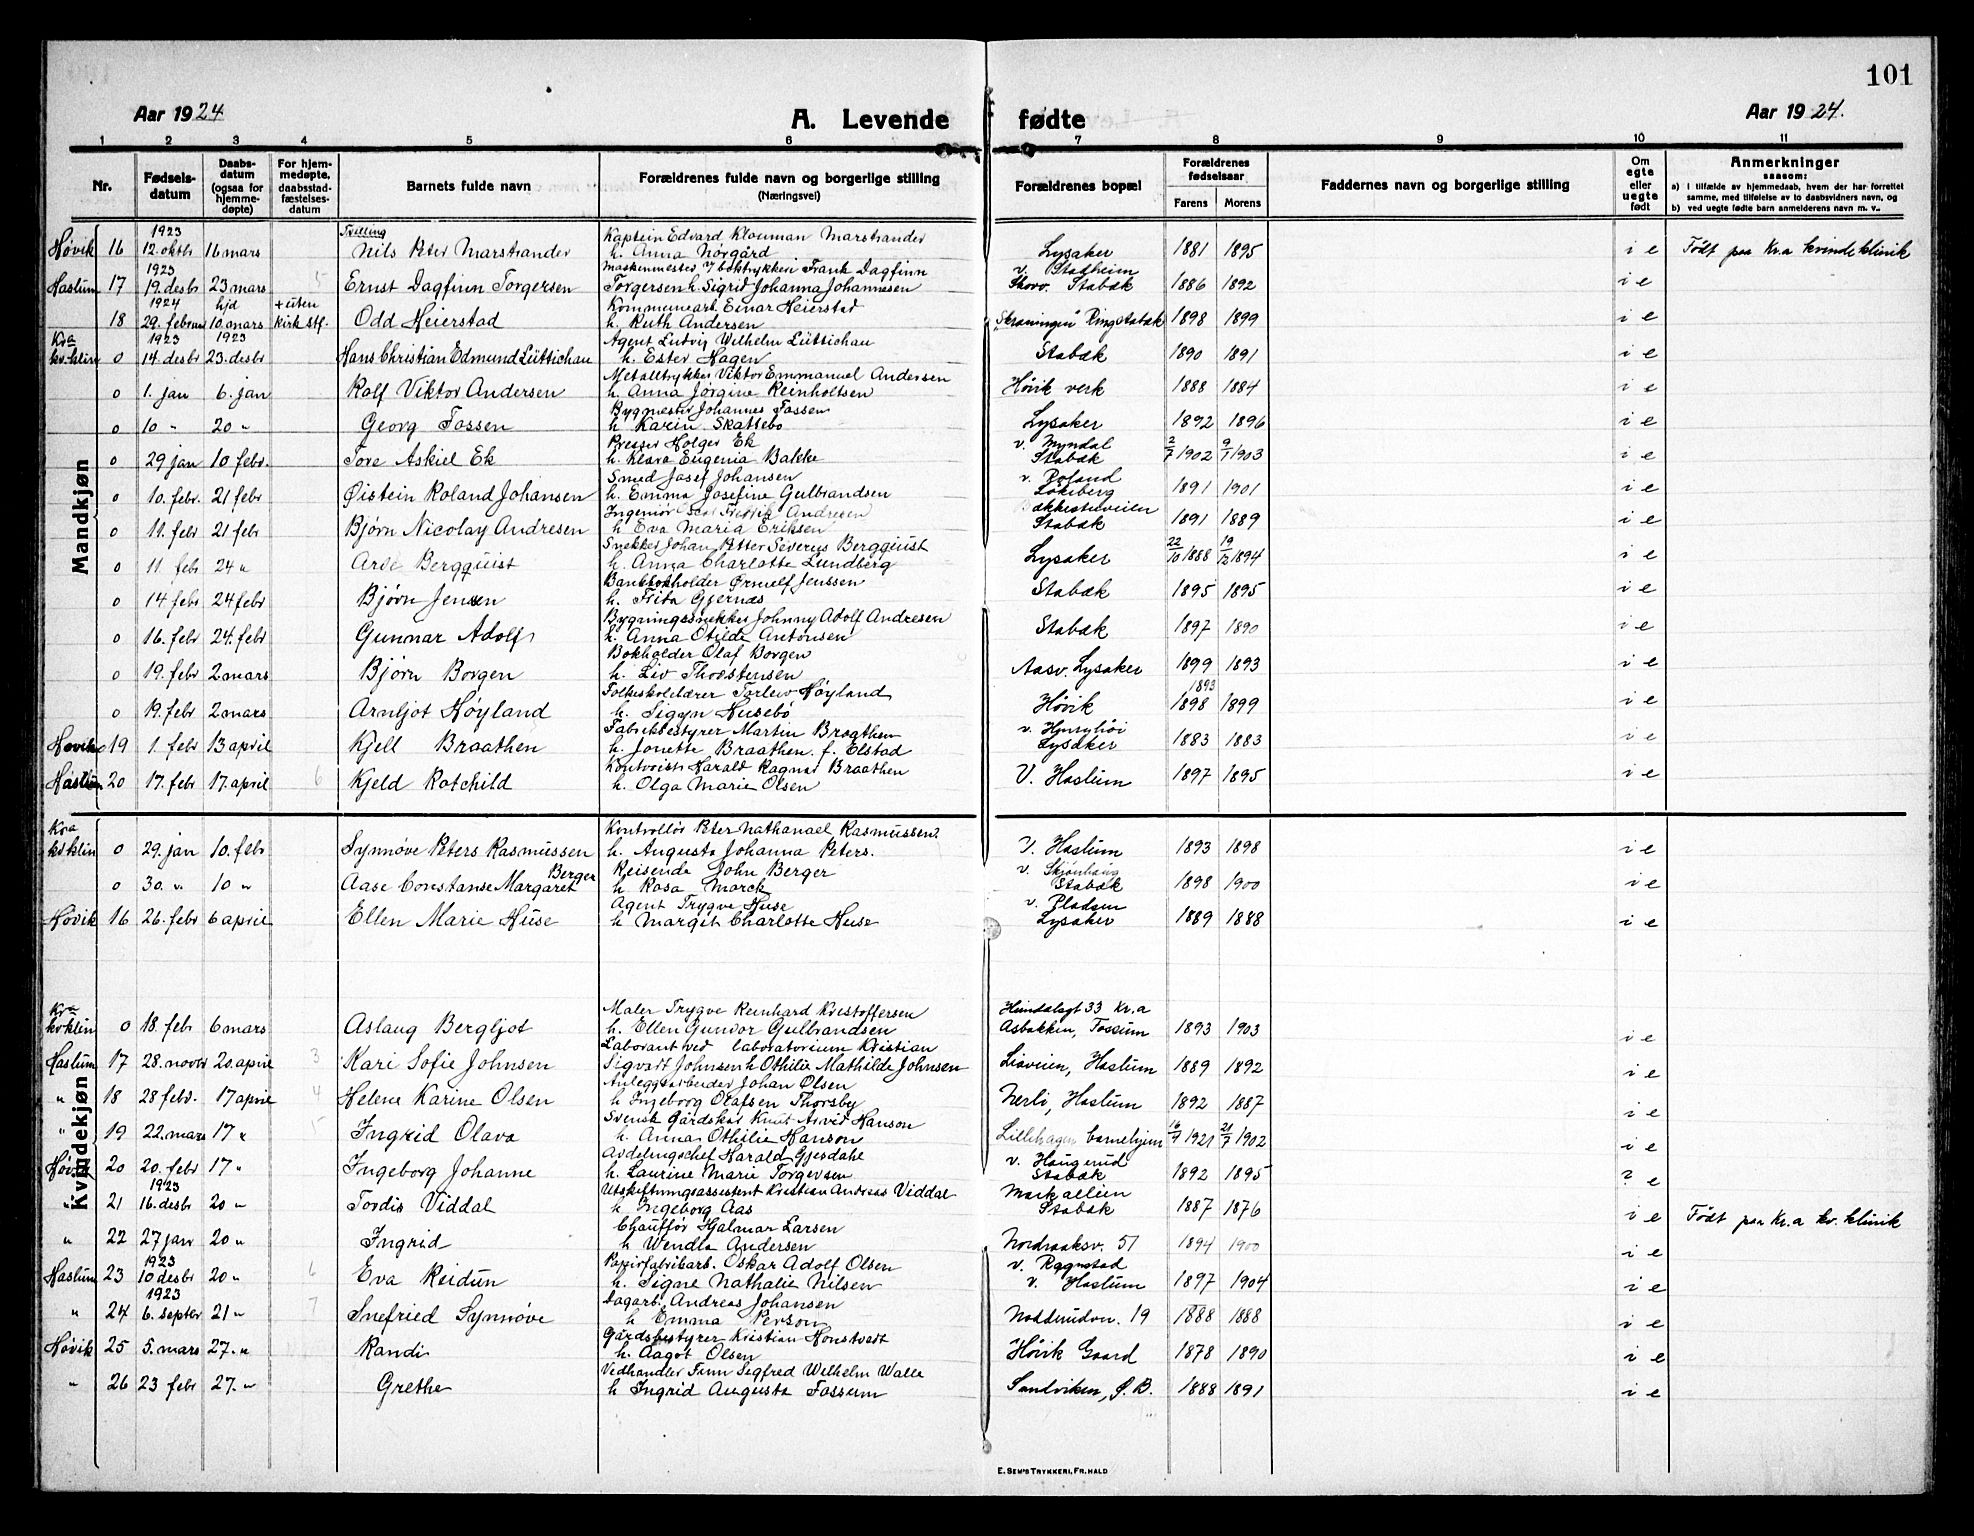 101
Aar 1924 A. Levende fødte Aar 1924.
1 2 3 4 5 6 7 8 9 10 11
Nr. Fødsels-datum Daabs-datum (ogsaa for hjemme-døpte) For hjem-medøpte, daabsstad-fæstelses-datum Barnets fulde navn Forældrenes fulde navn og borgerlige stilling (Næringsvei) Forældrenes bopæl Forældrenes fødselsaar Farens Morens Faddernes navn og borgerlige stilling Om egte eller uegte født Anmerkninger saasom:
a) i tilfælde av hjemmedaab, hvem der har forrettet samme, med tilføielse av to daabsvidners navn, og
b) ved uegte fødte barn anmelderens navn m. v.
Mandkjøn
1923 Tvilling Kaptein Edvard Klouman Marstrander
Høvik 16 12. oktbr 16 mars Nils Peter Marstrander h. Anna Nørgård Lysaker 1881 1895 i e Født paa Kr.a kvindeklinik
1923 Maskinmester i boktrykkeri Frank Dagfinn v. Stadheim
Haslum 17 19. desbr 23 mars 5 Ernst Dagfinn Torgersen Torgersen h. Sigrid Johanna Johannesen Stabæk 1886 1892 i e
1924 hjd + uten Kommunearb. Einar Heierstad
18 29. februar 10 mars kirk. stf. Odd Heierstad h. Ruth Andersen Ringstabæk 1898 1899 i e
Kra 1923 1923 Agent Ludvig Wilhelm Lüttichau
kv.klin 0 14. desbr 23. desbr Hans Christian Edmund Lüttichau h. Ester Hagen Stabæk 1890 1891 i e
Metalltrykker Viktor Emmanuel Andersen
0 1. jan 6. jan Rolf Viktor Andersen h. Anna Jørgine Reinholtsen Høvik verk 1888 1884 i e
Bygmester Johannes Fossen
0 10 " 20 " Georg Fossen h. Karin Skattebo Lysaker 1892 1896 i e
Presser Holger Ek v. Myrdal
0 29 jan 10 febr. Tore Askiel Ek h. Klara Eugenia Bakke Stabæk 2/7 1902 9/1 1903 i e
Smed Josef Johansen v. Roland
0 10. febr. 21 febr Øistein Roland Johansen h. Emma Josefine Gulbrandsen Løkeberg 1891 1901 i e
Ingeniør Fredrik Andresen
0 11. febr 21 febr Bjørn Nicolay Andresen h. Eva Maria Eriksen Stabæk 1891 1889 i e
Snekker Johan Petter Severus Bergquist
0 11. febr 24 " Arne Bergquist h. Anna Charlotte Lundberg Lysaker 22/10 1888 19/12 1894 i e
Bankbokholder Ørnulf Jenssen
0 14 febr 24 febr Bjørn Jensen h. Frida Gjernæs Stabæk 1895 1895 i e
Bygningssnekker Johnny Adolf Andresen
0 16. febr 24. febr Gunnar Adolf h. Anna Otilde Antonsen Stabæk 1897 1890 i e
Bokholder Olaf Borgen
0 19. febr 2 mars Bjørn Borgen h. Liv Thorstensen Aasv. Lysaker 1899 1893 i e
Folkeskolelærer Torleiv Høyland 1893
0 19. febr 2 mars Arnljot Høyland h. Sigyn Husebø Høvik 1898 1899 i e
Fabrikbestyrer Martin Braathen
Høvik 19 1. febr 13 april Kjell Braathen h. Jonette Braathen f. Elstad Lysaker 1883 1883 i e
Kontorist Harald Ragnar Braathen
Haslum 20 17. febr 17. april 6 Kjeld Rotchild h. Olga Marie Olsen V. Haslum 1897 1895 i e
Kvindekjøn
Kra Kontrollør Peter Nathanael Rasmussen.
kv.klin 0 29. jan 10. febr Synnøve Peters Rasmussen h. Augusta Johanna Peters. V. Haslum 1893 1898 i e
Berger Reisende John Berger
0 30. " 10 " Aase Constanse Margaret h Rosa Marck Stabæk 1898 1900 i e
Agent Trygve Huse v. Pladsen
Høvik 16 26. febr 6 april Ellen Marie Huse h Margit Charlotte Huse Lysaker 1889 1888 i e
Kra Maler Trygve Reinhard Kristoffersen 33 Kr.a
kv.klin 0 18. feb 6 mars Aslaug Bergljot h. Ellen Gundor Gulbrandsen Asbakken, Fossum 1893 1903 i e
Laborant ved laboratorium Kristian
Haslum 17 28. novbr 20. april 3 Kari Sofie Johnsen Sigvart Johnsen h Othilie Mathilde Johnsen Liaveien, Haslum 1889 1892 i e
Anleggsarbeider Johan Olsen
" 18 28 febr. 17 april 4 Helene Karine Olsen h Ingeborg Olafsen Thorsby Nerli, Haslum 1892 1887 i e
Svensk gårdskar Knut Arvid Hanson
" 19 22. mars 17 " Ingrid Olava h. Anna Othilie Hanson Lillehagen barnehjem 16/9 1921 21/7 1902 i e
Avdelingschef Harald Gjesdahl v. Haugerud
Høvik 20 20. febr 17 " Ingeborg Johanne h. Laurine Marie Torgersen Stabæk 1892 1895 ? e
1923 Utskiftningsassistent Kristian Andreas Viddal Markalleen
" 21 16. desbr 20 " Tordis Viddal h Ingeborg Aas Stabæk 1887 1876 i e Født paa Kr.a kv. klinik
Chauffør Hjalmar Larsen
" 22 27 jan 20 " Ingrid h Wendla Andersen Nordraaksv. 51 1894 1900 i e
1923 Papirfabrikarb. Oskar Adolf Olsen
Haslum 23 10 desbr 20 " 6 Eva Reidun h. Signe Nathalie Nilsen v. Haslum 1897 1904 i e
1923 Dagarb. Andreas Johansen
" 24 6. septbr 21 " 7 Snefried Synnøve h Emma Person Nadderudvn. 19 1888 1888 i e
Gårdsbestyrer Kristian Honstvedt
Høvik 25 5. mars 27. " Randi h. Aagot Olsen Høvik Gaard 1878 1890 i e
Vedhandler Finn Segfred Wilhelm Walle
" 26 23 febr 27. " Grethe h Ingrid Augusta Fossum Sandviken, Ø. B. 1888 1891 i e
E. SEM'S TRYKKERI, FR.HALD